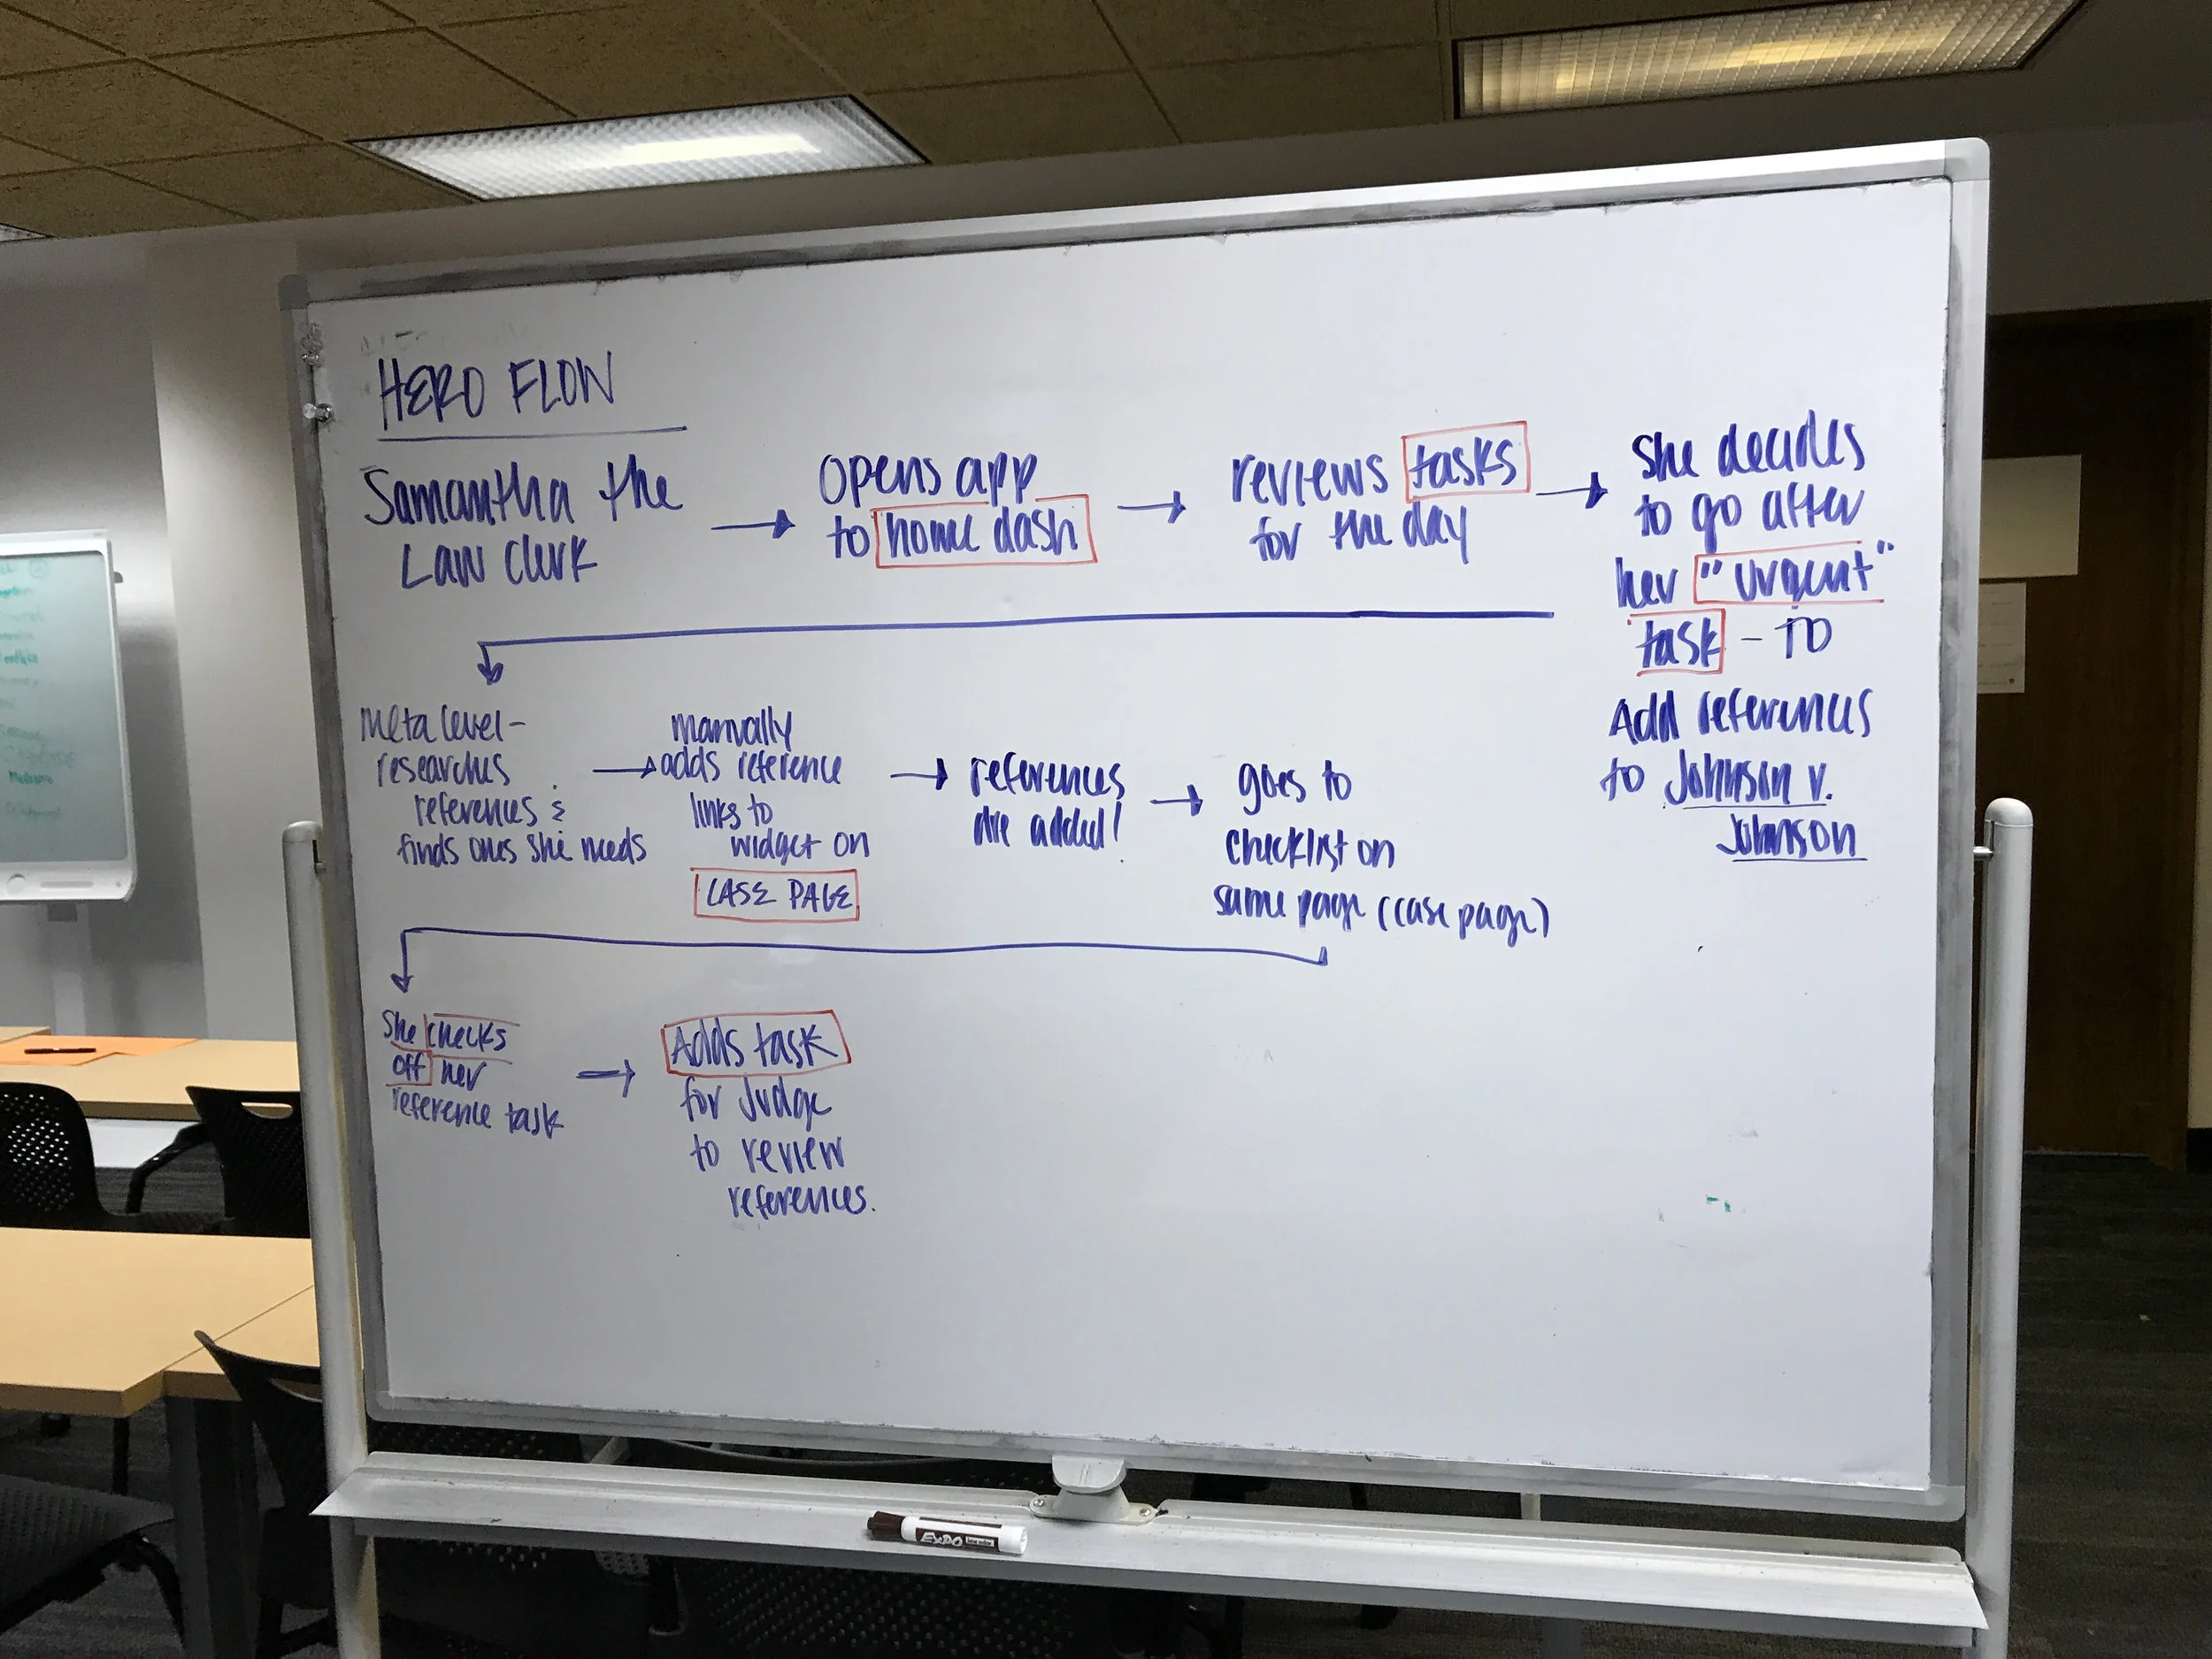 HERO FLOW
Samantha the
Law Clerk
opens app
to home dash
reviews tasks
for the day
she decides
to go after
her "urgent"
task - TO
Add references
to Johnson v.
Johnson
Meta level -
researches
references &
finds ones she needs
manually
adds reference
links to
widget on
CASE PAGE
references
are added!
goes to
checklist on
same page (case page)
she checks
off her
reference task
Adds task
for Judge
to review
references.
EXPO